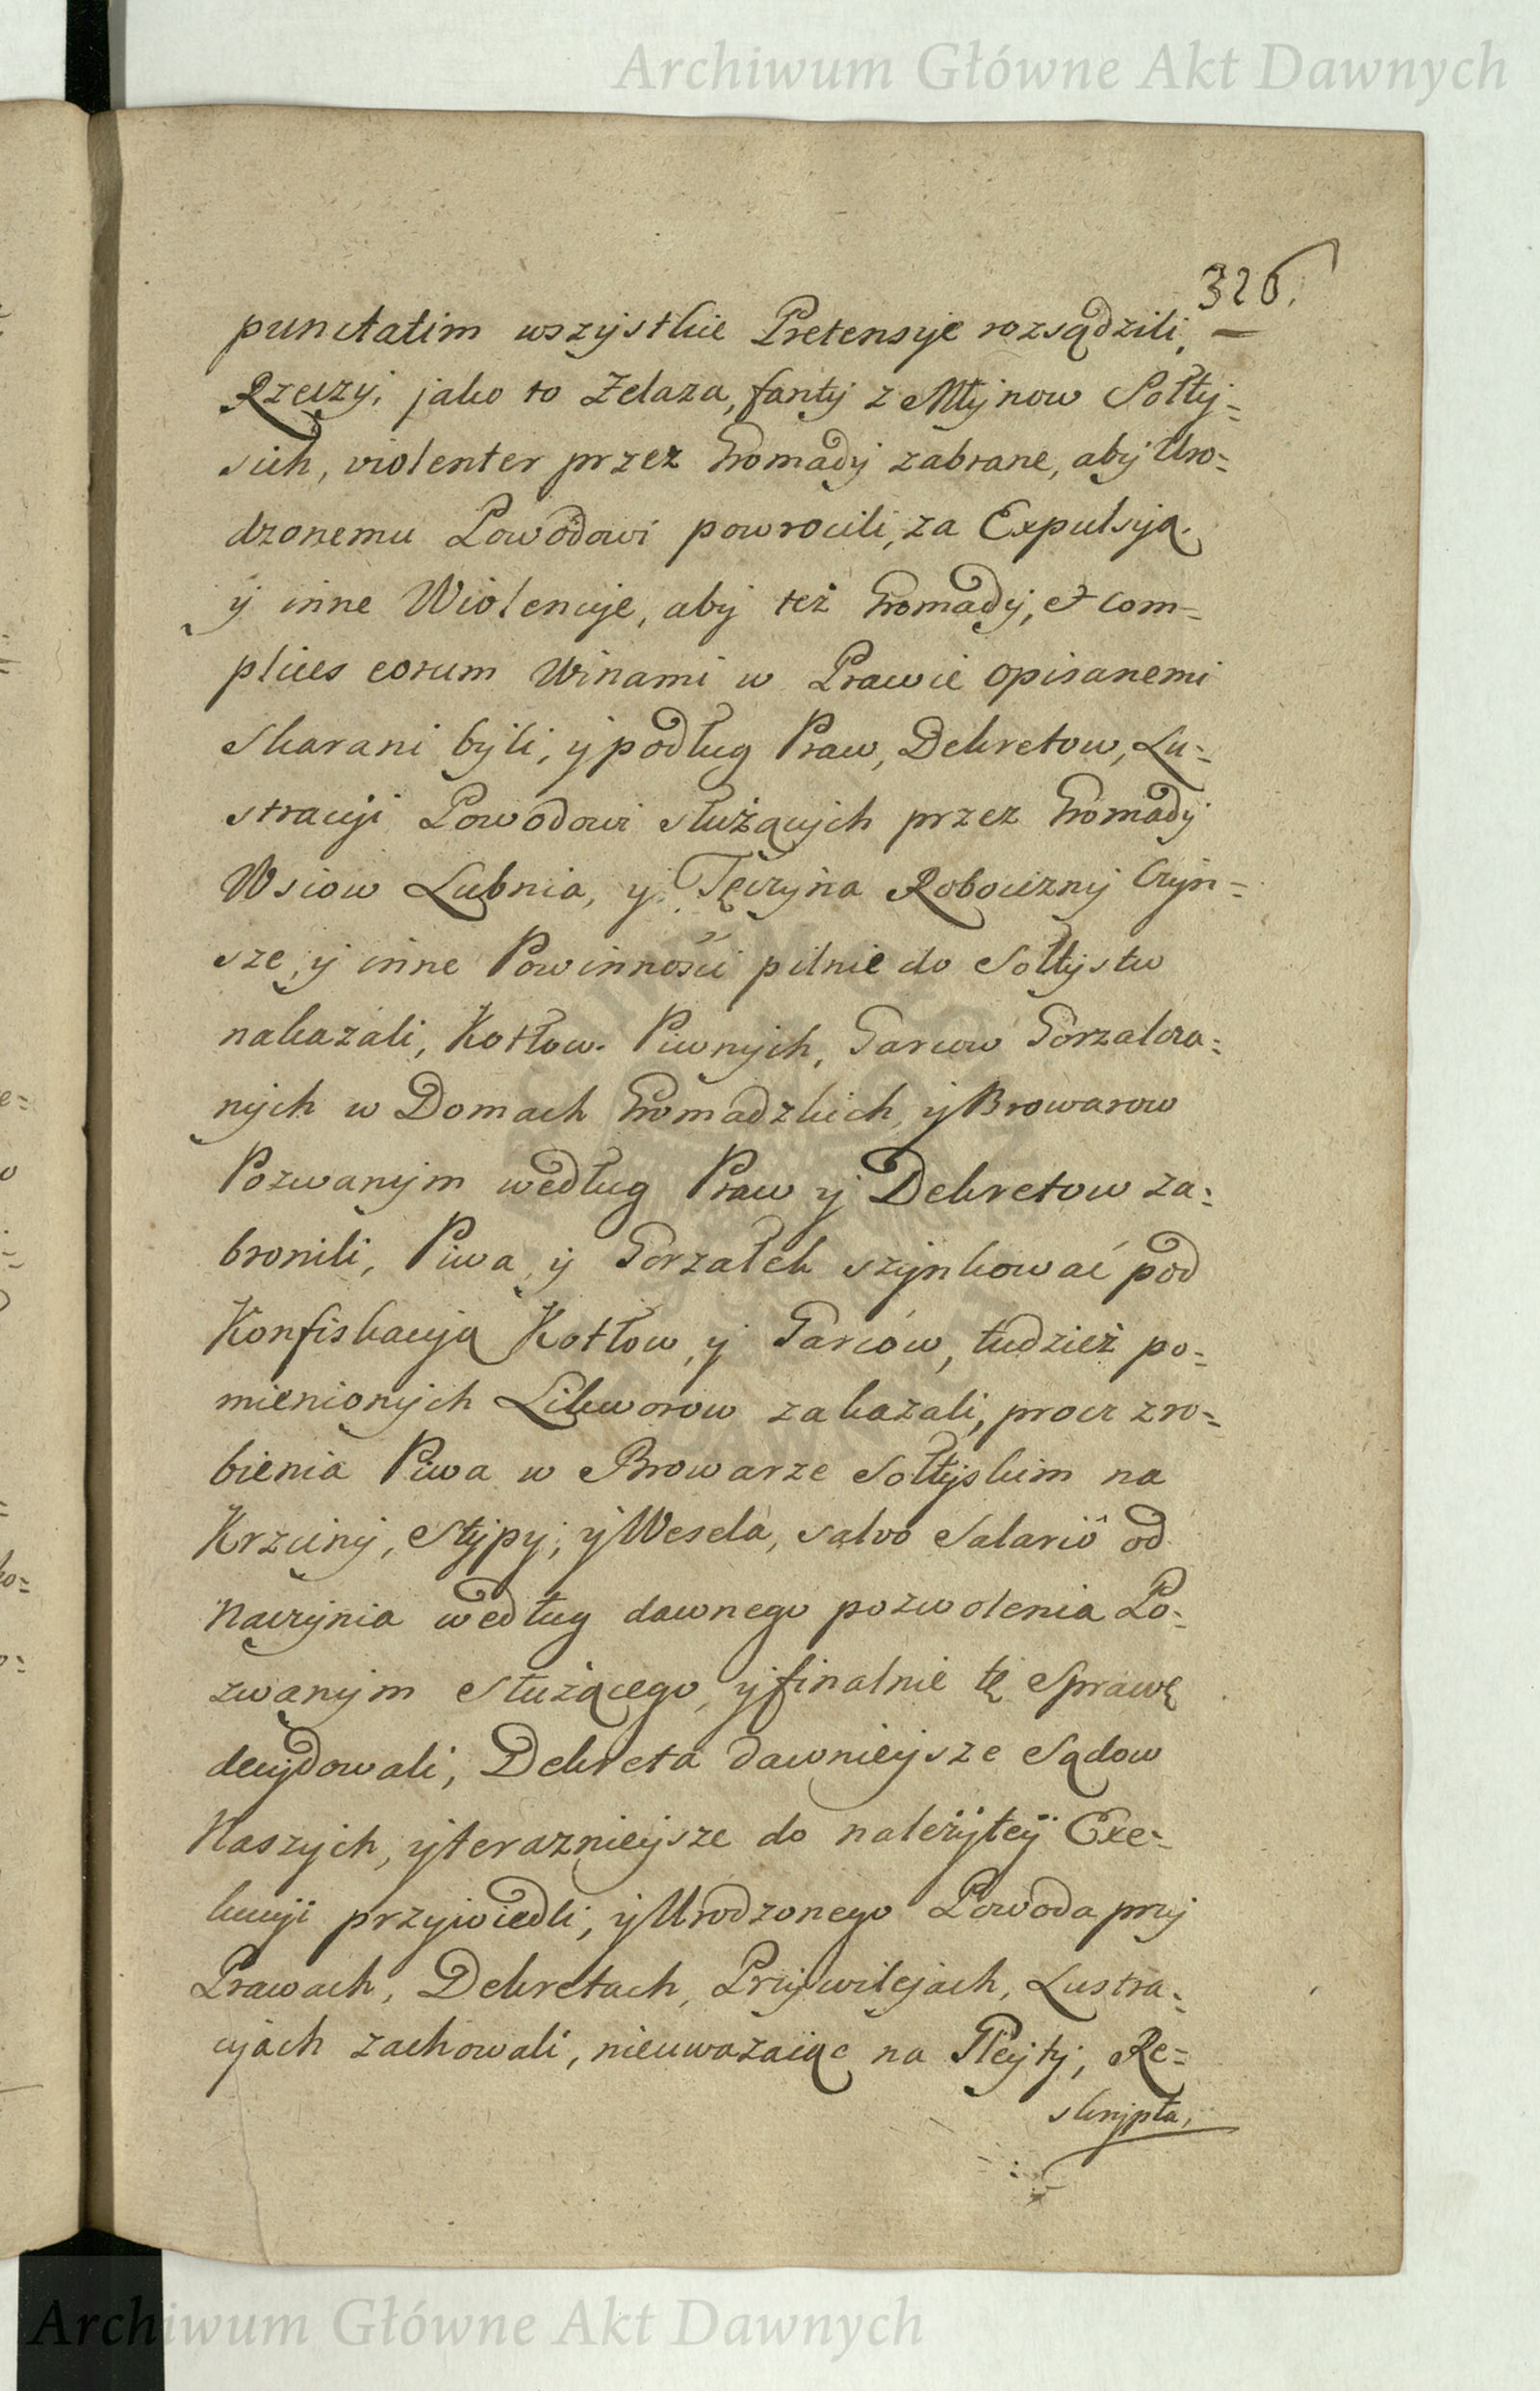 Archiwum Główne Akt Dawnych
326.
punctatim wszystkie Pretensye rozsądzili,
Rzeczy, jako to Zelaza, fanty z Młynow Sołty=
sich, violenter przez Gromady zabrane, aby Uro=
dzonemu Powodowi powrocili, za Expulsyą
y inne Wiolencye, aby też Gromady, et com=
plices eorum Winami w Prawie opisanemi
Skarani byli, y podług Praw, Dekretow, Lu=
stracyi Powodowi służących przez Gromady
Wsiow Lubnia, y Tęczyna Robocizny Czyn=
sze, y inne Powinności pilnie do Sołtystw
nakazali, Kotłow Piwnych, Garcow Gorzalcza=
nych w Domach Gromadzkich, y Browarow
Pozwanym według Praw y Dekretow za=
bronili, Piwa, y Gorzałek szynkować pod
Konfiskacyą Kotłow, y Garców, tudzież po=
mienionych Likworow zakazali, procz zro=
bienia Piwa w Browarze Sołtyskim na
Krzciny, Stypy, y Wesela, salvo Salariô od
Naczynia według dawnego pozwolenia Po=
zwanym Służącego, y finalnie tę Sprawę
decydowali, Dekreta dawnieysze Sądow
Naszych, y teraznieysze do należytey Exe=
kucyi przywiedli, y Urodzonego Powoda przy
Prawach, Dekretach, Przywilejach, Lustra=
cyach zachowali, nieuważaiąc na Gleyty, Re=
skrypta,
Archiwum Główne Akt Dawnych